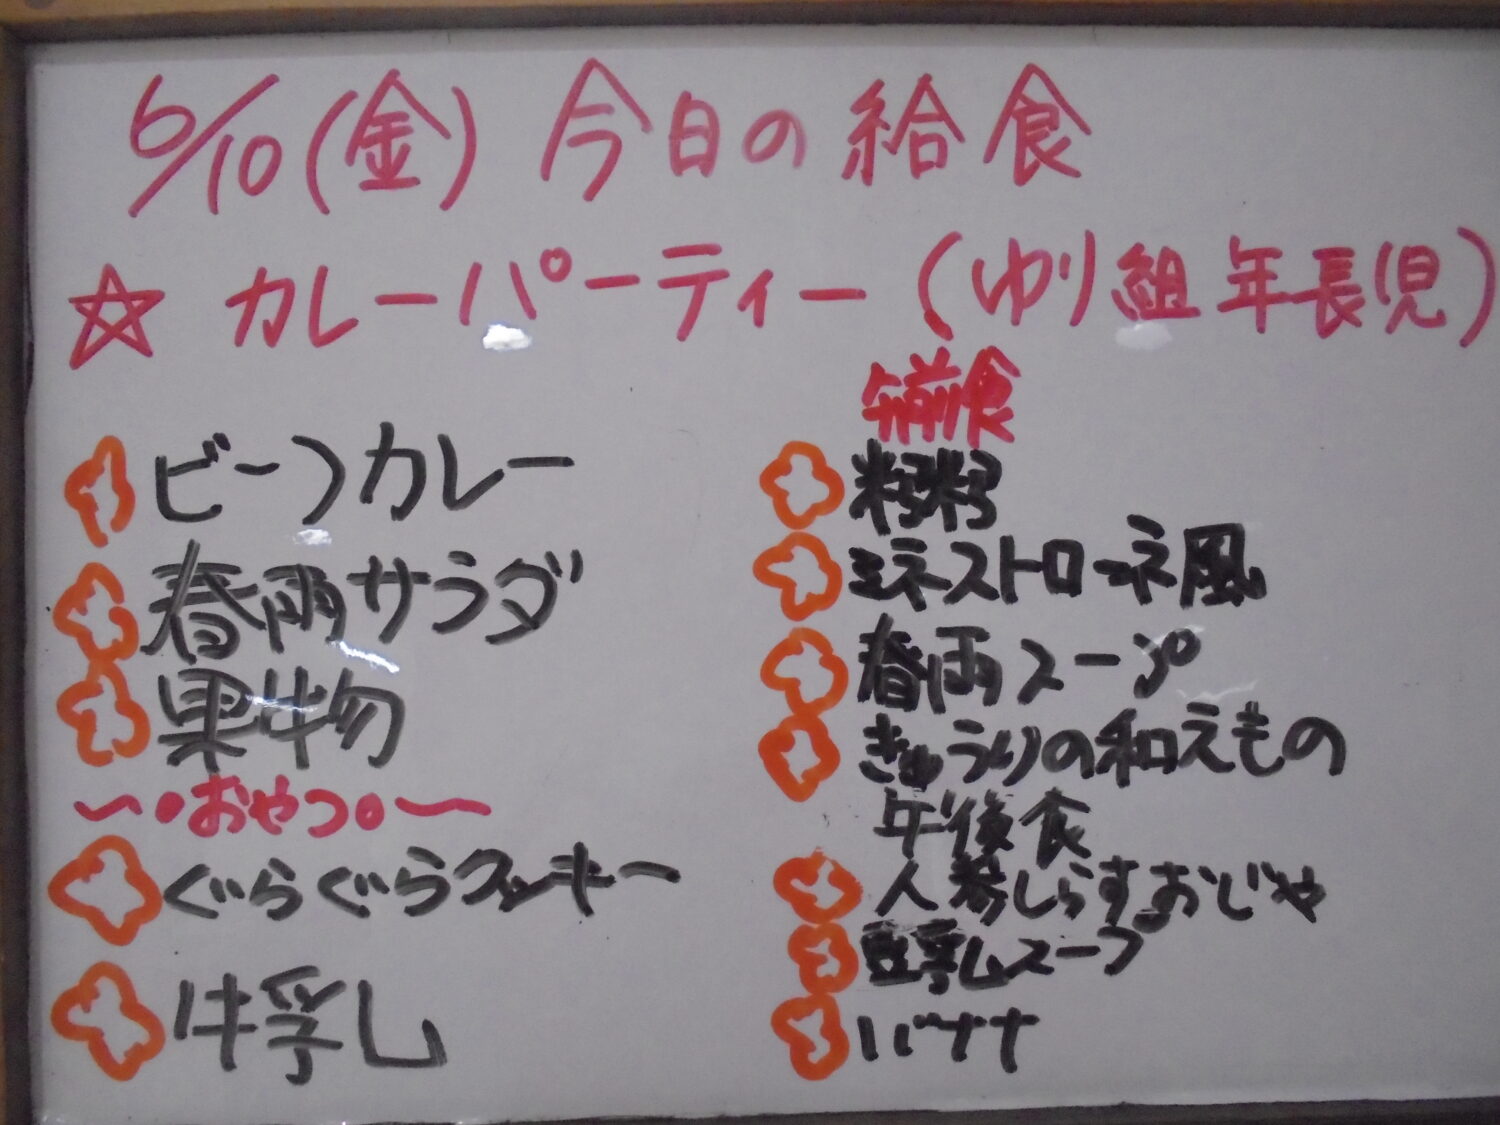 6/10(金)今日の給食
☆カレーパーティー(ゆり組年長児)
ビーフカレー
春雨サラダ
果物
〜・おやつ・〜
ぐらぐらクッキー
牛乳
午前食
ミネストローネ風
春雨スープ
きゅうりの和えもの
午後食
人参しらすおじや
豆乳スープ
バナナ